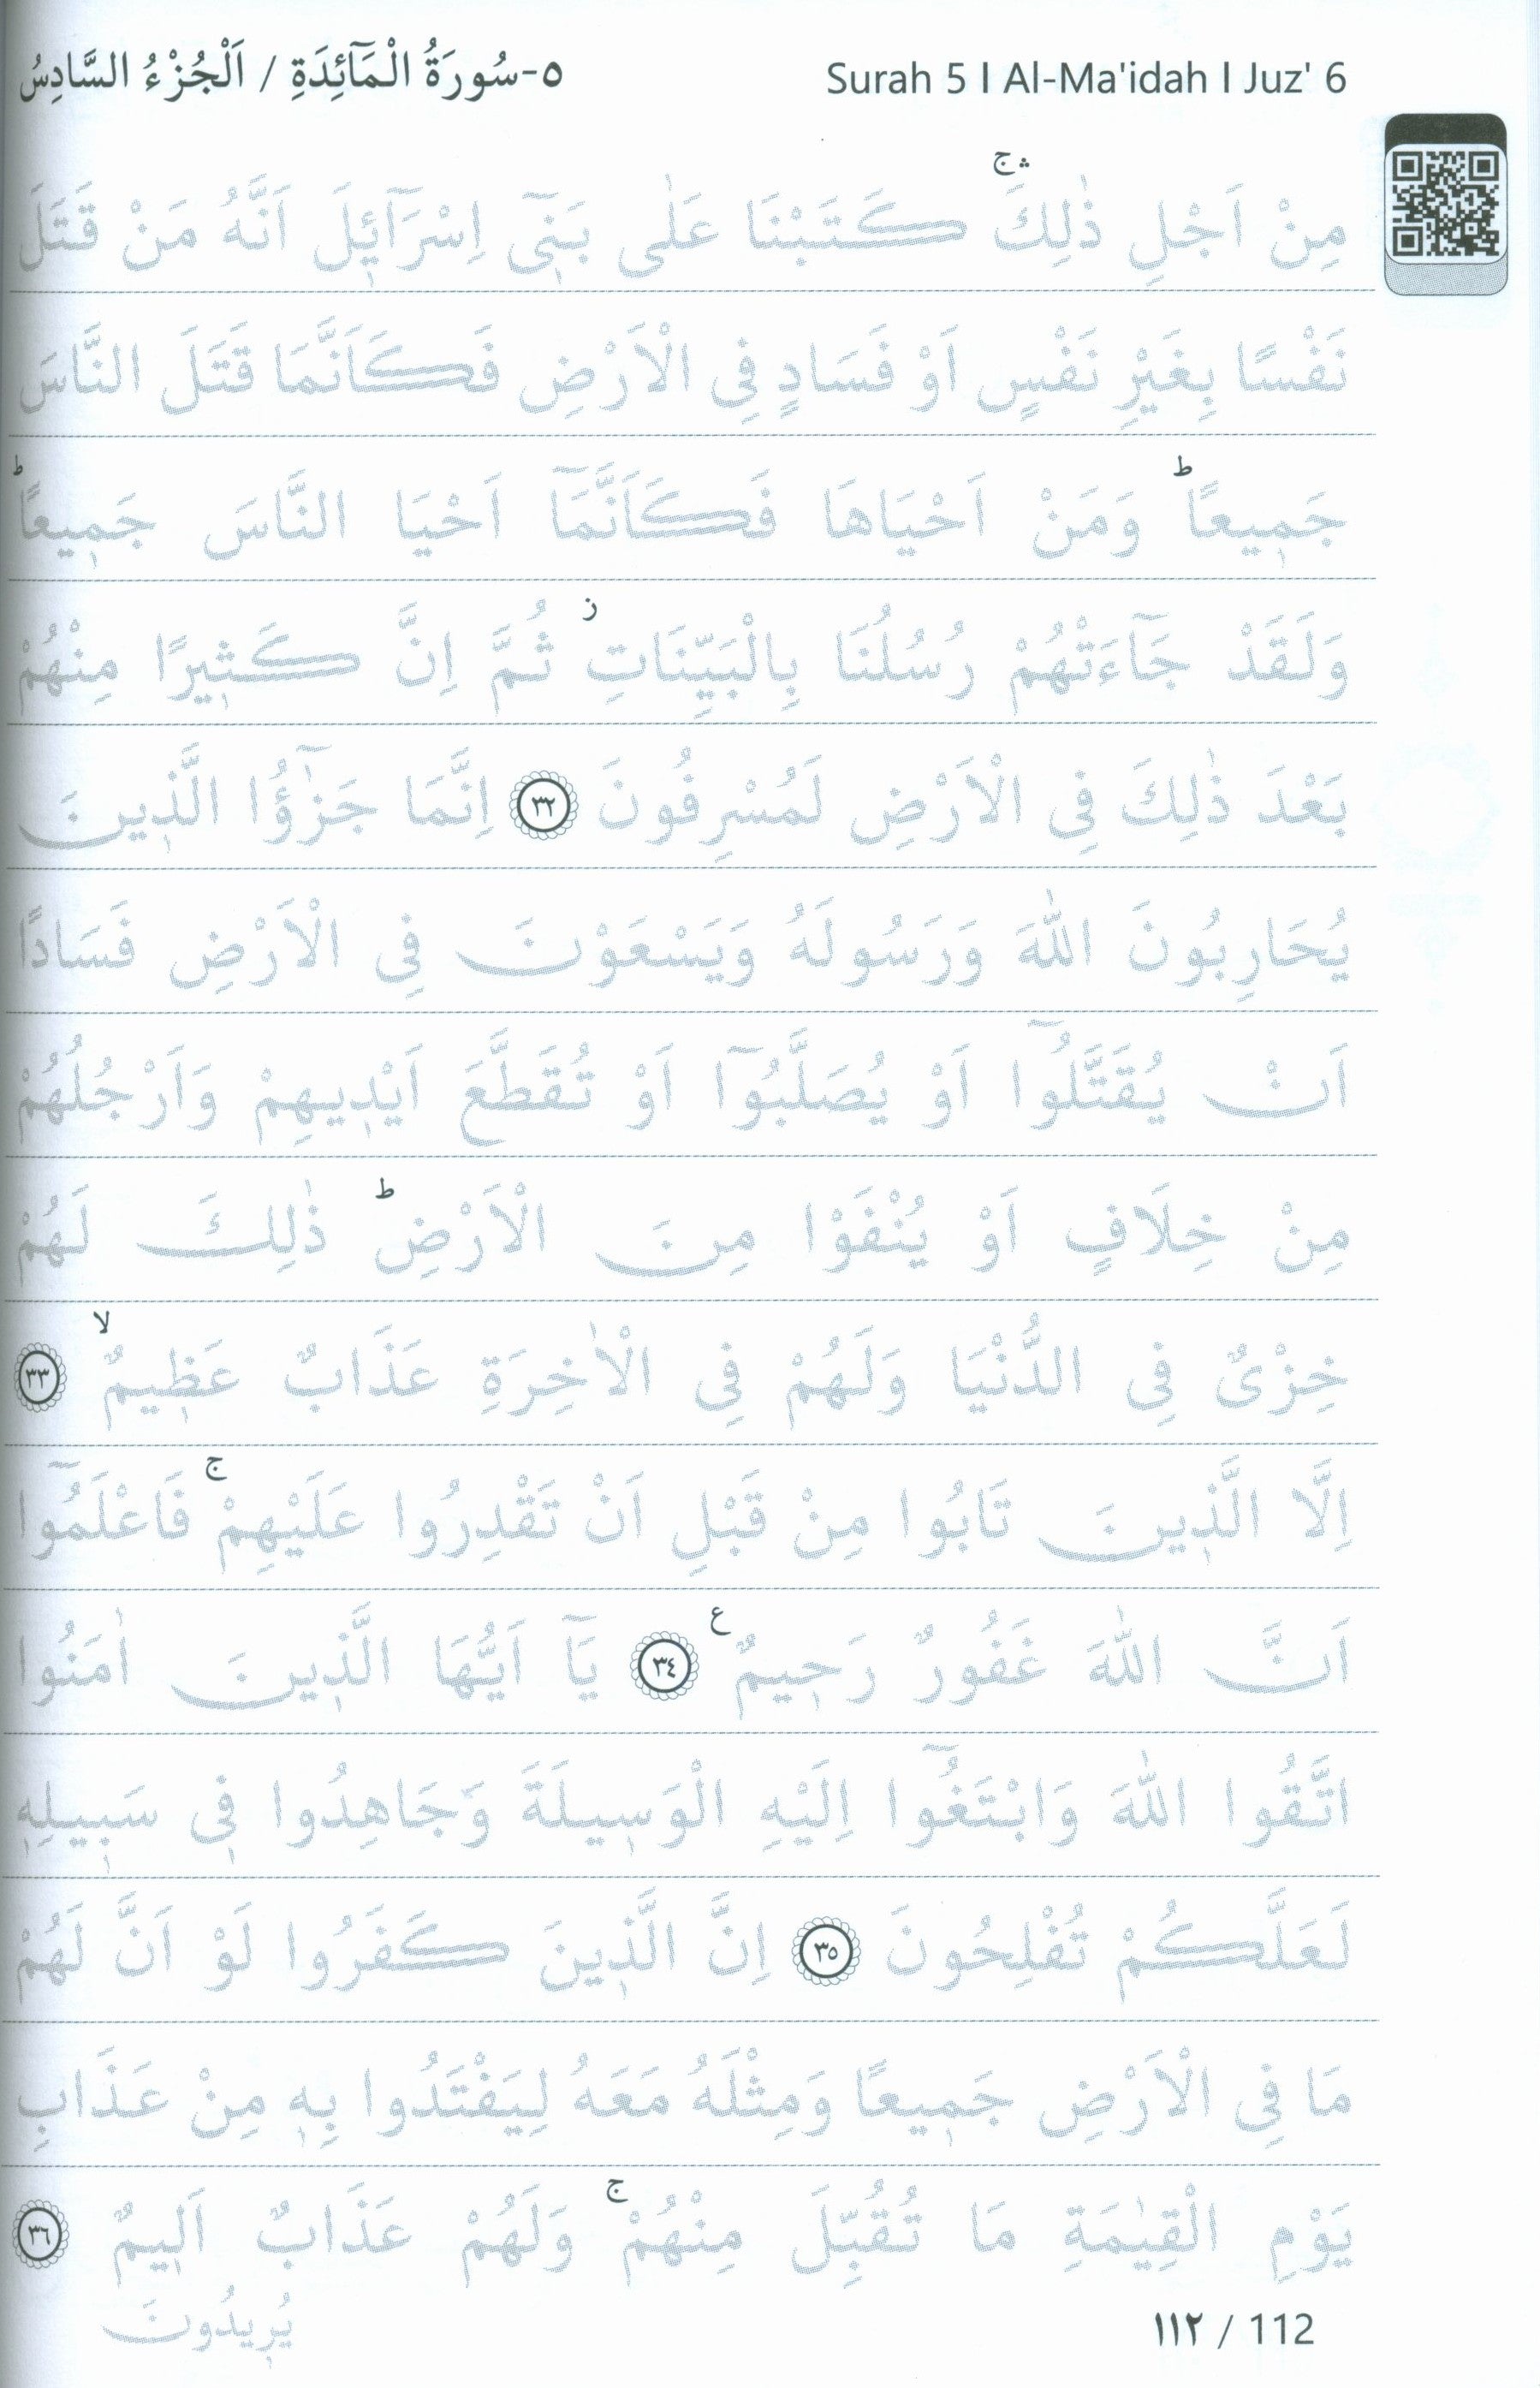 ٥-سُورَةُ الْمَآئِدَةِ / اَلْجُزْءُ السَّادِسُ
Surah 5 I Al-Ma'idah I Juz' 6
مِنْ اَجْلِ ذٰلِكَ ۛۚ كَتَبْنَا عَلٰى بَن۪ٓى اِسْرَآئ۪لَ اَنَّهُ مَنْ قَتَلَ
نَفْسًا بِغَيْرِ نَفْسٍ اَوْ فَسَادٍ فِى الْاَرْضِ فَكَاَنَّمَا قَتَلَ النَّاسَ
جَم۪يعًاۜ وَمَنْ اَحْيَاهَا فَكَاَنَّمَٓا اَحْيَا النَّاسَ جَم۪يعًاۜ
وَلَقَدْ جَآءَتْهُمْ رُسُلُنَا بِالْبَيِّنَاتِۘ ثُمَّ اِنَّ كَث۪يرًا مِنْهُمْ
بَعْدَ ذٰلِكَ فِى الْاَرْضِ لَمُسْرِفُونَ ٣٢ اِنَّمَا جَزٰٓؤُا الَّذ۪ينَ
يُحَارِبُونَ اللّٰهَ وَرَسُولَهُ وَيَسْعَوْنَ فِى الْاَرْضِ فَسَادًا
اَنْ يُقَتَّلُٓوا اَوْ يُصَلَّبُٓوا اَوْ تُقَطَّعَ اَيْد۪يهِمْ وَاَرْجُلُهُمْ
مِنْ خِلَافٍ اَوْ يُنْفَوْا مِنَ الْاَرْضِۜ ذٰلِكَ لَهُمْ
خِزْىٌ فِى الدُّنْيَا وَلَهُمْ فِى الْاٰخِرَةِ عَذَابٌ عَظ۪يمٌۙ ٣٣
اِلَّا الَّذ۪ينَ تَابُوا مِنْ قَبْلِ اَنْ تَقْدِرُوا عَلَيْهِمْۚ فَاعْلَمُٓوا
اَنَّ اللّٰهَ غَفُورٌ رَح۪يمٌ ع ٣٤ يَٓا اَيُّهَا الَّذ۪ينَ اٰمَنُوا
اتَّقُوا اللّٰهَ وَابْتَغُٓوا اِلَيْهِ الْوَس۪يلَةَ وَجَاهِدُوا ف۪ى سَب۪يلِه۪
لَعَلَّكُمْ تُفْلِحُونَ ٣٥ اِنَّ الَّذ۪ينَ كَفَرُوا لَوْ اَنَّ لَهُمْ
مَا فِى الْاَرْضِ جَم۪يعًا وَمِثْلَهُ مَعَهُ لِيَفْتَدُوا بِه۪ مِنْ عَذَابِ
يَوْمِ الْقِيٰمَةِ مَا تُقُبِّلَ مِنْهُمْۚ وَلَهُمْ عَذَابٌ اَل۪يمٌ ٣٦
يُر۪يدُونَ
١١٢ / 112